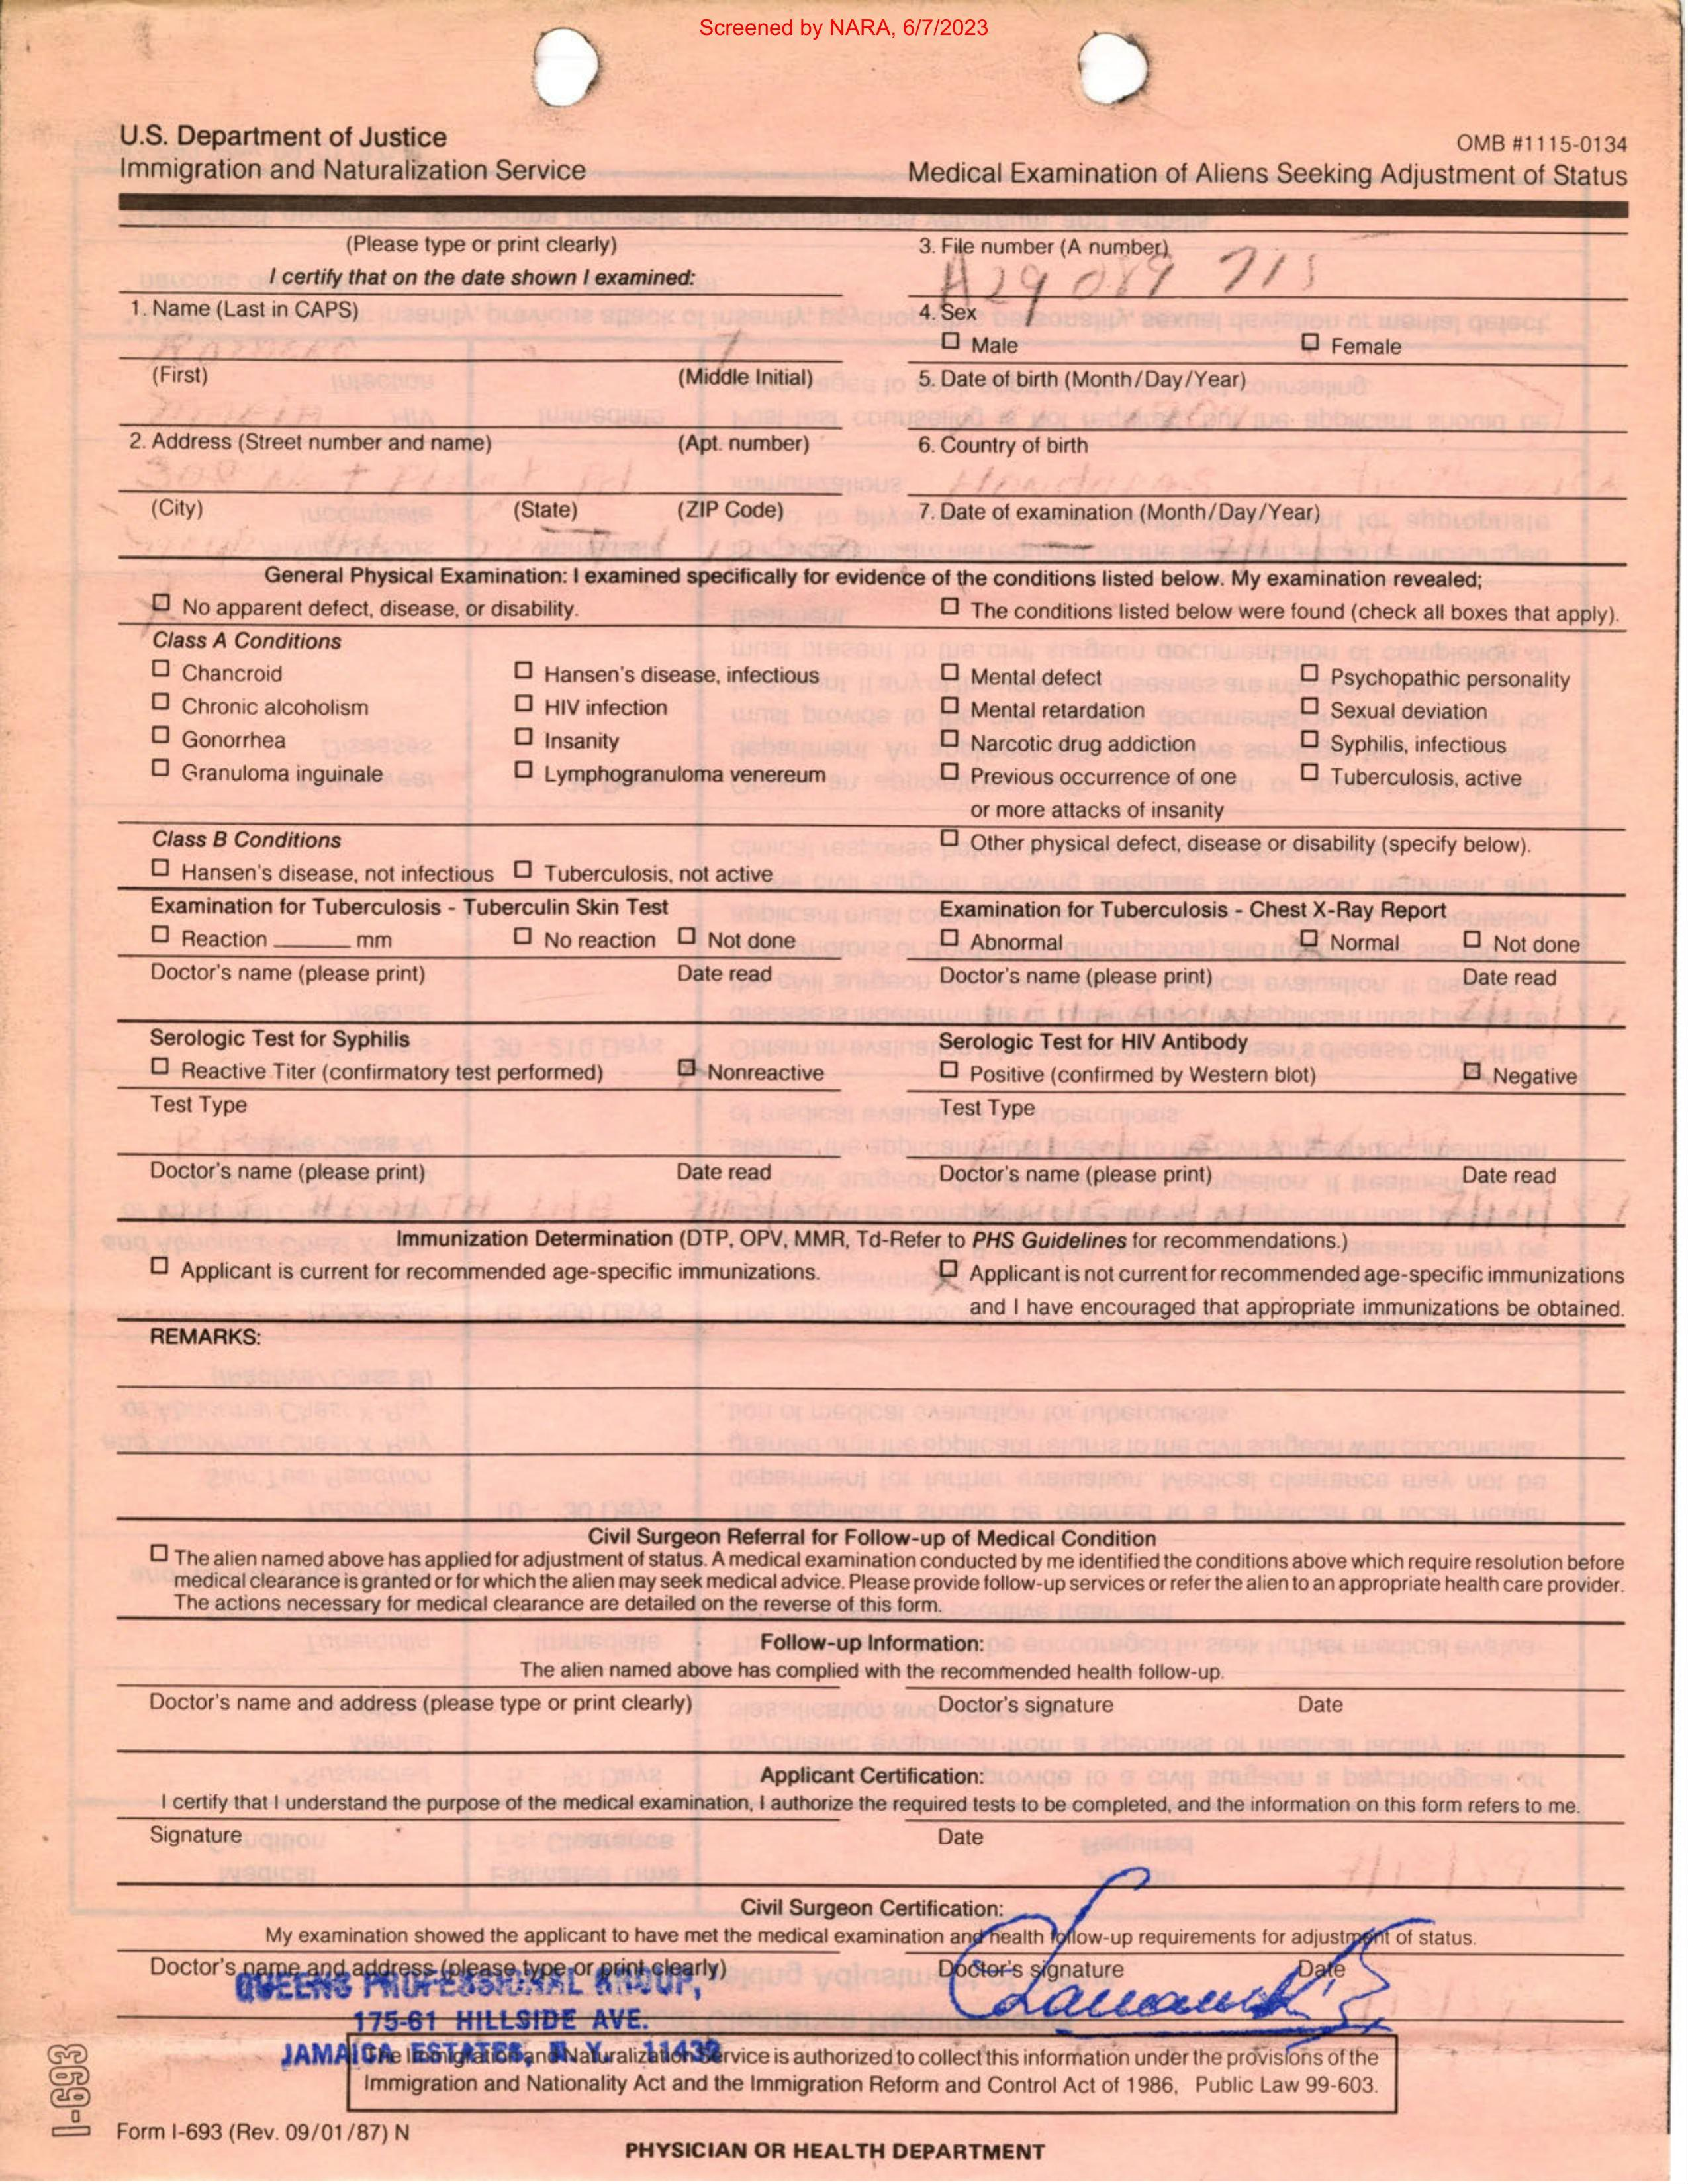 Screened by NARA, 6/7/2023
U.S. Department of Justice
Immigration and Naturalization Service
OMB #1115-0134
Medical Examination of Aliens Seeking Adjustment of Status
(Please type or print clearly)
I certify that on the date shown I examined:
3. File number (A number)
A29 089 715
1. Name (Last in CAPS)
4. Sex
☐ Male ☐ Female
(First) (Middle Initial)
5. Date of birth (Month/Day/Year)
2. Address (Street number and name) (Apt. number)
6. Country of birth
Honduras
(City) (State) (ZIP Code)
7. Date of examination (Month/Day/Year)
General Physical Examination: I examined specifically for evidence of the conditions listed below. My examination revealed;
☒ No apparent defect, disease, or disability. ☐ The conditions listed below were found (check all boxes that apply).
Class A Conditions
☐ Chancroid ☐ Hansen's disease, infectious ☐ Mental defect ☐ Psychopathic personality
☐ Chronic alcoholism ☐ HIV infection ☐ Mental retardation ☐ Sexual deviation
☐ Gonorrhea ☐ Insanity ☐ Narcotic drug addiction ☐ Syphilis, infectious
☐ Granuloma inguinale ☐ Lymphogranuloma venereum ☐ Previous occurrence of one ☐ Tuberculosis, active
or more attacks of insanity
Class B Conditions ☐ Other physical defect, disease or disability (specify below).
☐ Hansen's disease, not infectious ☐ Tuberculosis, not active
Examination for Tuberculosis - Tuberculin Skin Test Examination for Tuberculosis - Chest X-Ray Report
☐ Reaction ______ mm ☐ No reaction ☐ Not done ☐ Abnormal ☒ Normal ☐ Not done
Doctor's name (please print) Date read Doctor's name (please print) Date read
Serologic Test for Syphilis Serologic Test for HIV Antibody
☐ Reactive Titer (confirmatory test performed) ☒ Nonreactive ☐ Positive (confirmed by Western blot) ☒ Negative
Test Type Test Type
Doctor's name (please print) Date read Doctor's name (please print) Date read
Immunization Determination (DTP, OPV, MMR, Td-Refer to PHS Guidelines for recommendations.)
☐ Applicant is current for recommended age-specific immunizations. ☒ Applicant is not current for recommended age-specific immunizations
and I have encouraged that appropriate immunizations be obtained.
REMARKS:
Civil Surgeon Referral for Follow-up of Medical Condition
☐ The alien named above has applied for adjustment of status. A medical examination conducted by me identified the conditions above which require resolution before
medical clearance is granted or for which the alien may seek medical advice. Please provide follow-up services or refer the alien to an appropriate health care provider.
The actions necessary for medical clearance are detailed on the reverse of this form.
Follow-up Information:
The alien named above has complied with the recommended health follow-up.
Doctor's name and address (please type or print clearly) Doctor's signature Date
Applicant Certification:
I certify that I understand the purpose of the medical examination, I authorize the required tests to be completed, and the information on this form refers to me.
Signature Date
Civil Surgeon Certification:
My examination showed the applicant to have met the medical examination and health follow-up requirements for adjustment of status.
Doctor's name and address (please type or print clearly) Doctor's signature Date
QUEENS PROFESSIONAL GROUP,
175-61 HILLSIDE AVE.
JAMAICA ESTATES, N.Y. 11432
The Immigration and Naturalization Service is authorized to collect this information under the provisions of the
Immigration and Nationality Act and the Immigration Reform and Control Act of 1986, Public Law 99-603.
I-693
Form I-693 (Rev. 09/01/87) N
PHYSICIAN OR HEALTH DEPARTMENT